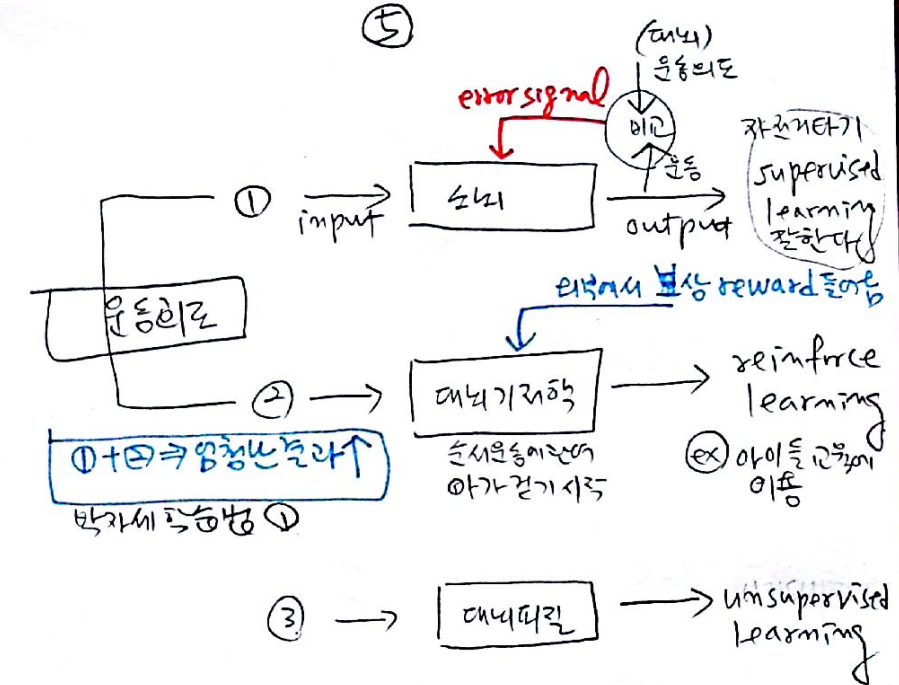 ⑤
(대뇌)
운동의도
error signal
비교
운동
자전거타기
supervised
learning
잘한다
①
input
소뇌
output
외부에서 보상 reward 들어옴
운동회로
②
대뇌기저핵
reinforce
learning
순서운동에관여
아가 걷기 시작
ex 아이들 교육에
이용
①+②⇒엄청난 결과↑
박자세 학습법 ①
③
대뇌피질
unsupervised
learning